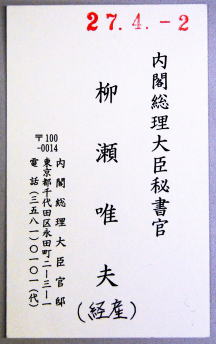 27.4.-2
内閣総理大臣秘書官
柳瀬唯夫
(経産)
内閣総理大臣官邸
〒100
-0014
東京都千代田区永田町二-三-一
電話(三五八一)〇一〇一(代)